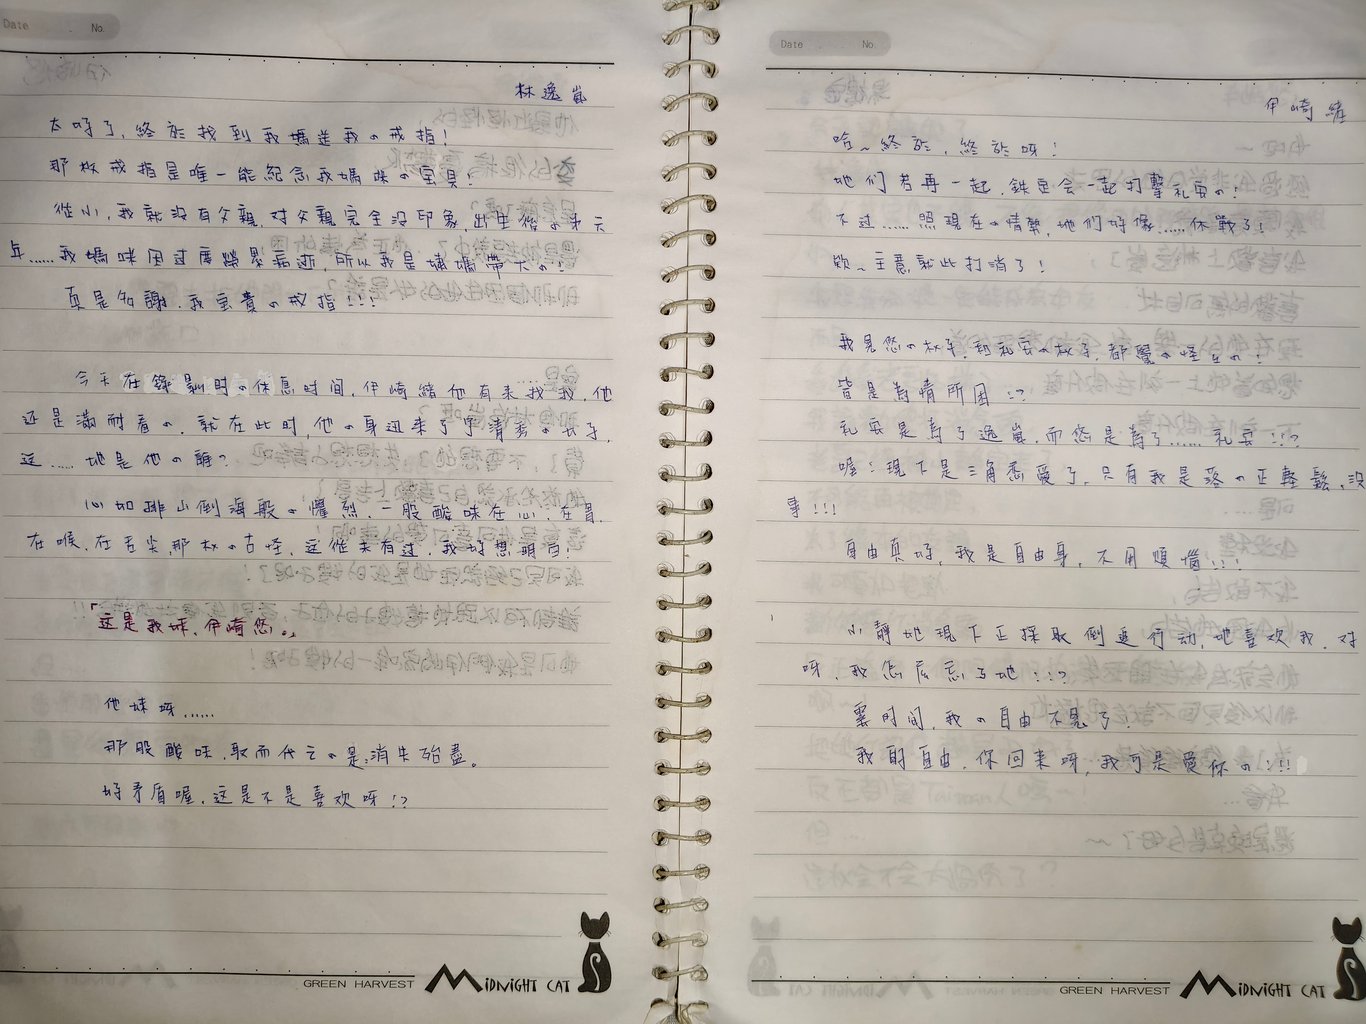 Date . . No.
林逸嵐
太好了,終於找到我媽送我の戒指!
那枚戒指是唯一能紀念我媽咪の宝具?
從小,我就沒有父親,对父親完全沒印象,出生後の來天
年……我媽咪因过度勞累而逝,所以我是媽帶大の!!
真是多謝,我宝貴の戒指!!!
今天在錄影时の休息时间,伊崎緒他有來找我,他
还是滿耐看の,就在此时,他の身边来了个清秀の女子,
这……她是他の誰?
心如排山倒海般の慘烈,一股酸味在心,在胃,
在喉,在舌尖,那般の古怪,这從未有过,我好想明白!
「这是我妹,伊崎悠。」
他妹呀……
那股酸味,取而代之の是消失殆盡。
好矛盾喔,这是不是喜欢呀!?
GREEN HARVEST MIDNIGHT CAT
Date . . No.
伊崎緒
哈~終於,終於呀!
她们若再一起,鉄定会一起打擊礼安の!
不过……照現在の情勢,她们好像……休戰了!
欸~主意就此打消了!
我見悠の样子,和礼安の样子,都覺の怪怪の!
皆是為情所困!?
礼安是為了逸嵐,而悠是為了……礼安!!?
喔!現下是三角恋愛了,只有我是落の正輕鬆,沒
事!!!
自由真好,我是自由身,不用煩惱!!!
小靜她現下正採取倒追行动,她喜欢我,对
呀,我怎么忘了她!!?
霎时间,我の自由不見了!
我的自由,你回来呀,我可是愛你の!!!
GREEN HARVEST MIDNIGHT CAT